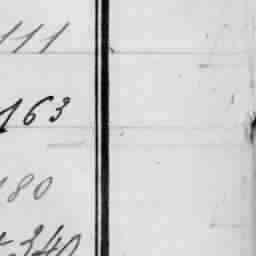 111
163
180
340